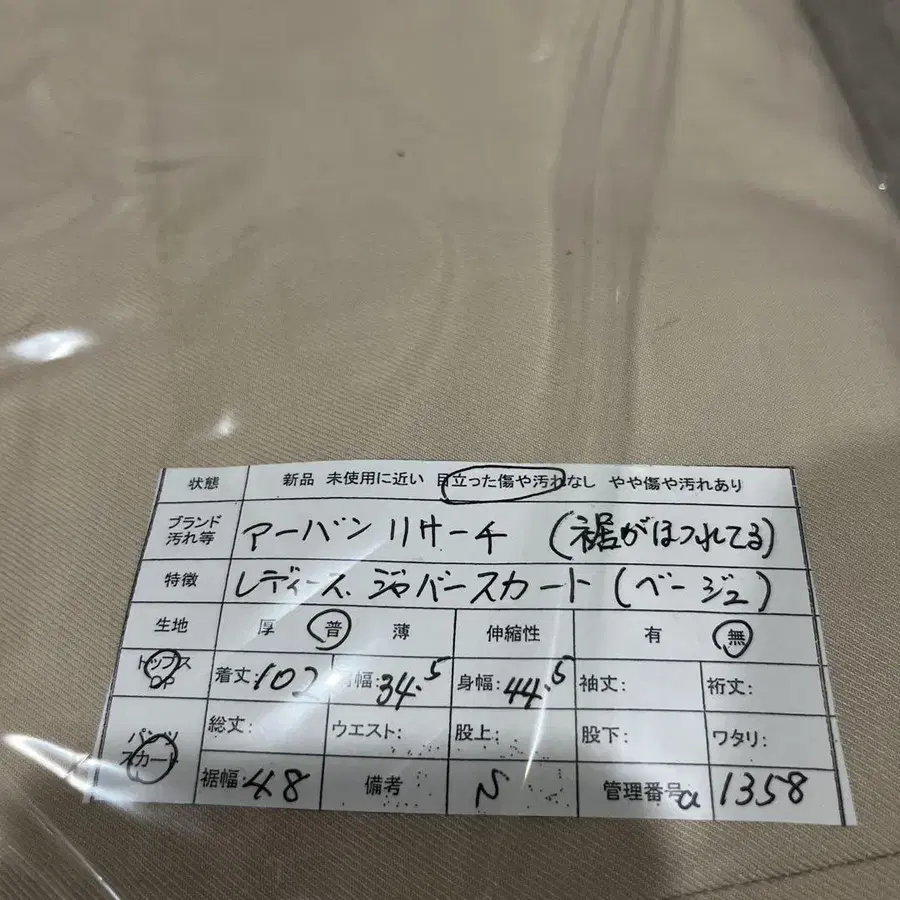 状態 新品 未使用に近い 目立った傷や汚れなし やや傷や汚れあり
ブランド 汚れ等 アーバンリサーチ (裾がほつれてる)
特徴 レディース. ジャバースカート (ベージュ)
生地 厚 普 薄 伸縮性 有 無
トップス OP 着丈:102 肩幅:34.5 身幅:44.5 袖丈: 裄丈:
パンツ スカート 総丈: ウエスト: 股上: 股下: ワタリ:
裾幅:48 備考 N 管理番号 α 1358